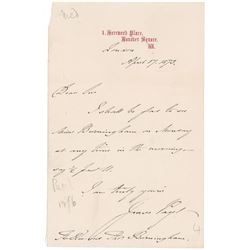 1, Harewood Place,
Hanover Square,
W.
London
April 17, 1873.
Dear Sir
I shall be glad to see
Miss Birmingham on Monday
at any time in the morning
I am truly yours
James Paget
Birmingham